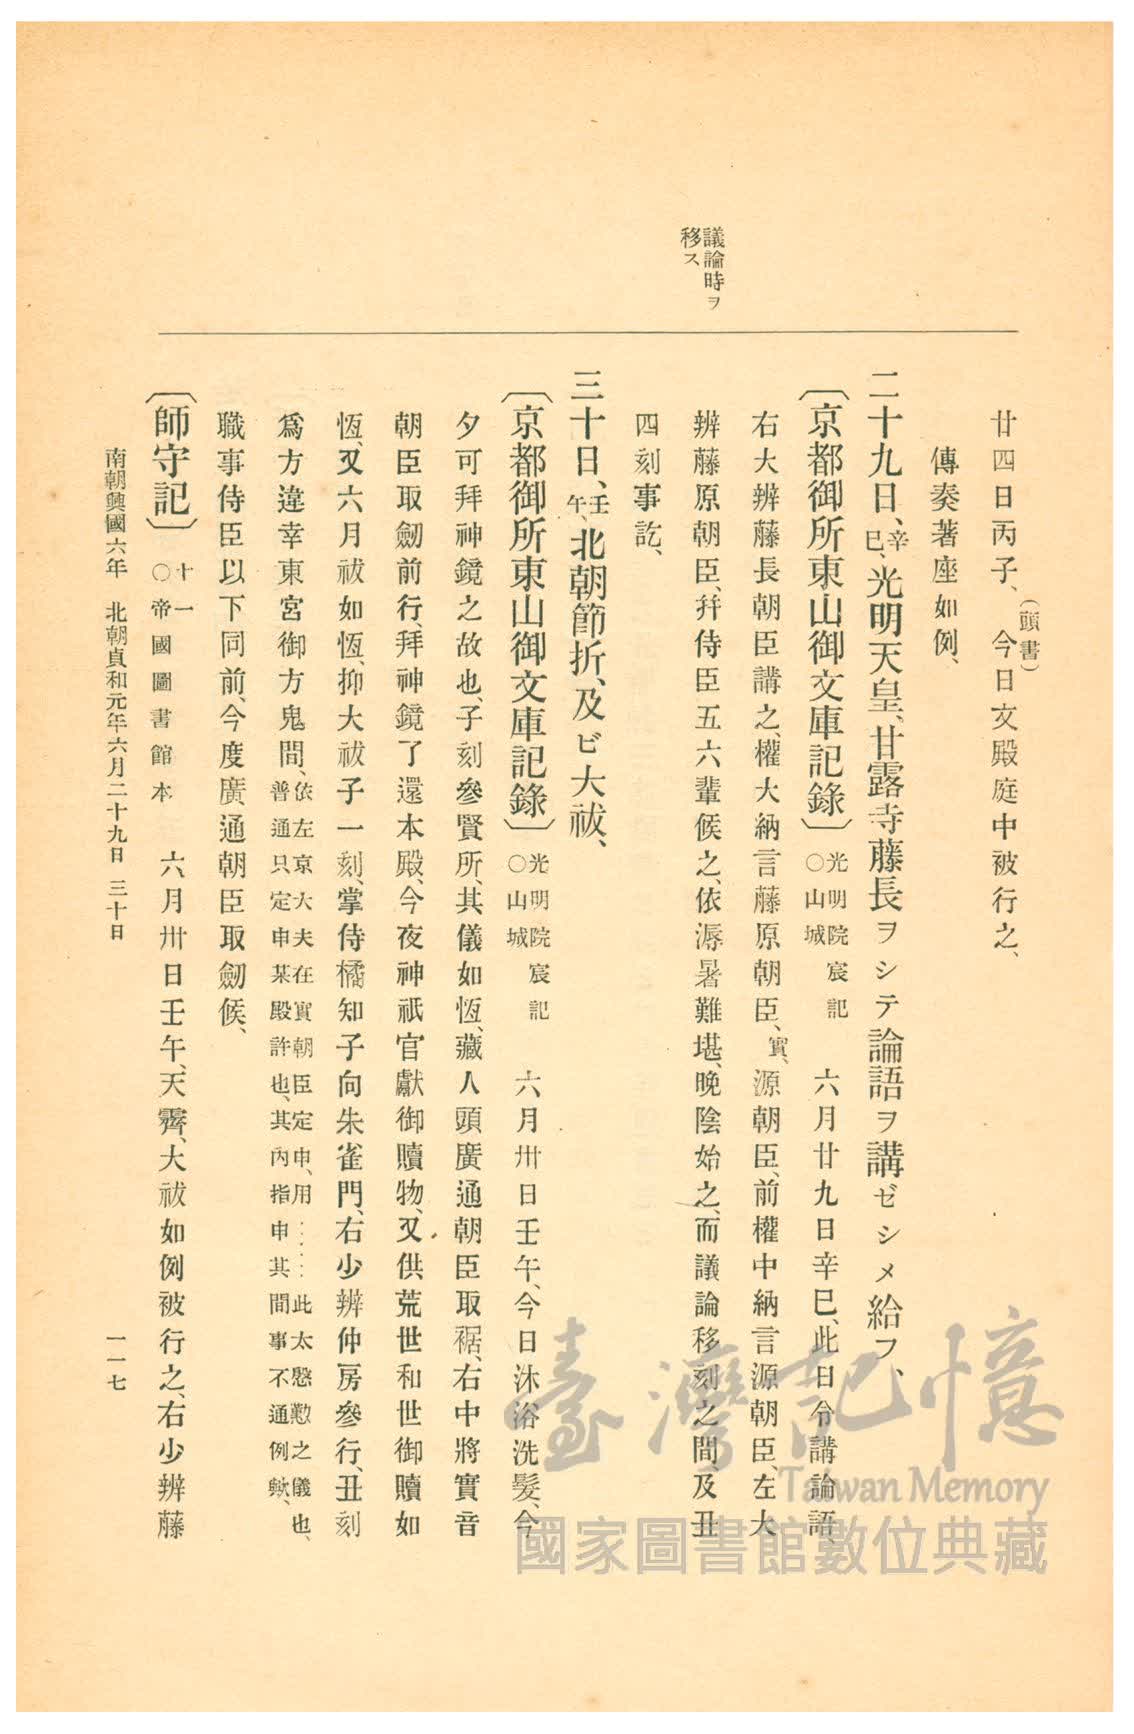 議論時ヲ
移ス
(頭書)
廿四日丙子、今日文殿庭中被行之、
傳奏著座如例、
二十九日、辛巳、光明天皇、甘露寺藤長ヲシテ論語ヲ講ゼシメ給フ、
〔京都御所東山御文庫記錄〕○山城 光明院宸記 六月廿九日辛巳、此日令講論語、
右大辨藤長朝臣講之、權大納言藤原朝臣、實、源朝臣、前權中納言源朝臣、左大
辨藤原朝臣、幷侍臣五六輩候之、依溽暑難堪、晚陰始之、而議論移刻之間、及丑
四刻事訖、
三十日、壬午、北朝節折、及ビ大祓、
〔京都御所東山御文庫記錄〕○山城 光明院宸記 六月卅日壬午、今日沐浴洗髮、今
夕可拜神鏡之故也、子刻參賢所、其儀如恆、藏人頭廣通朝臣取裾、右中將實音
朝臣取劒前行、拜神鏡了還本殿、今夜神祇官獻御贖物、又供荒世和世御贖如
恆、又六月祓如恆、抑大祓子一刻、掌侍橘知子向朱雀門、右少辨仲房參行、丑刻
爲方違幸東宮御方鬼間、依左京大夫在實朝臣定申、用……此太慇懃之儀也、
普通只定申某殿許也、其內指申其間事不通例歟、
職事侍臣以下同前、今度廣通朝臣取劒候、
〔師守記〕十一 ○帝國圖書館本 六月卅日壬午、天霽、大祓如例被行之、右少辨藤
南朝興國六年 北朝貞和元年六月二十九日 三十日
一一七
臺灣記憶
Taiwan Memory
國家圖書館數位典藏